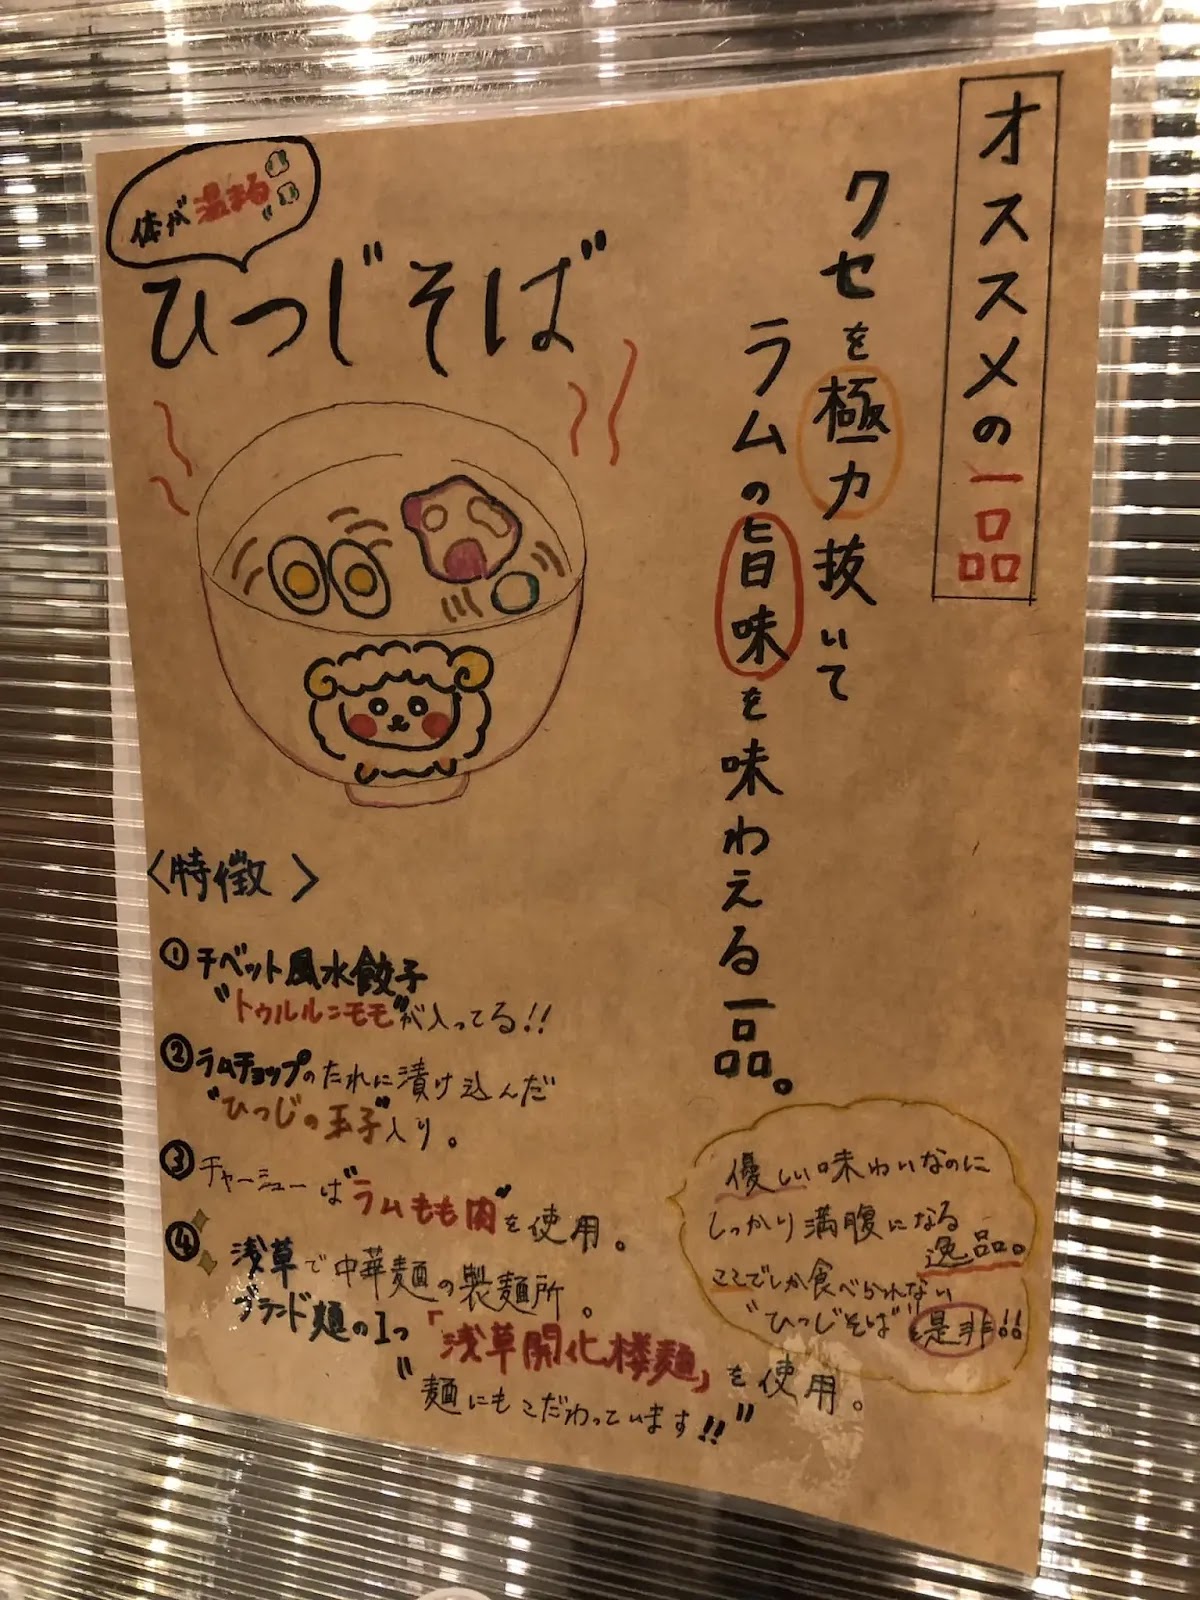 オススメの一品
クセを極力抜いて
ラムの旨味を味わえる一品。
体が温まる
ひつじそば
〈特徴〉
①チベット風水餃子
"トゥルルンモモ"が入ってる!!
②ラムチョップのたれに漬け込んだ
"ひつじの玉子"入り。
③チャーシューは"ラムもも肉"を使用。
④浅草で中華麺の製麺所。
ブランド麺の1つ「浅草開化楼麺」を使用。
"麺にもこだわっています!!"
優しい味わいなのに
しっかり満腹になる
逸品。
ここでしか食べられない
"ひつじそば"是非!!